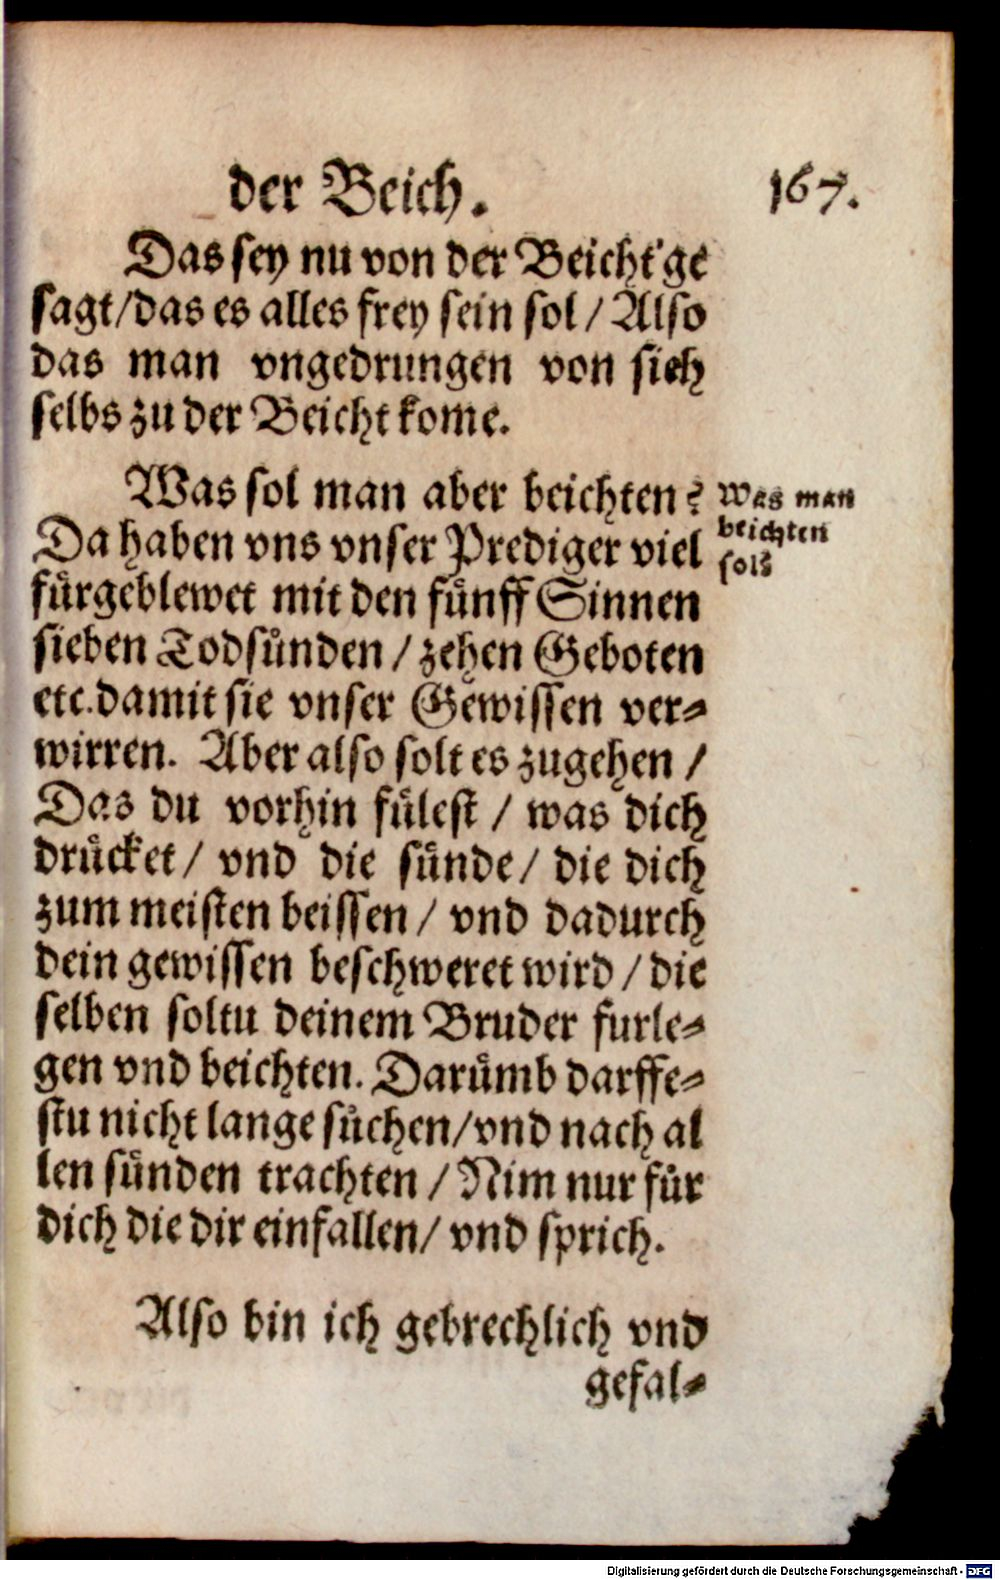 der Beich.
167.
Das sey nu von der Beicht ge
sagt/das es alles frey sein sol / Also
das man vngedrungen von sich
selbs zu der Beicht kome.
Was sol man aber beichten?
Was man
beichten
sols
Da haben vns vnser Prediger viel
fürgeblewet mit den fünff Sinnen
sieben Todsünden / zehen Geboten
etc.damit sie vnser Gewissen ver-
wirren. Aber also solt es zugehen /
Das du vorhin fülest / was dich
drücket / vnd die sünde / die dich
zum meisten beissen / vnd dadurch
dein gewissen beschweret wird / die
selben soltu deinem Bruder furle-
gen vnd beichten. Darümb darffe-
stu nicht lange süchen/vnd nach al
len sünden trachten / Nim nur für
dich die dir einfallen/ vnd sprich.
Also bin ich gebrechlich vnd
gefal-
Digitalisierung gefördert durch die Deutsche Forschungsgemeinschaft - DFG